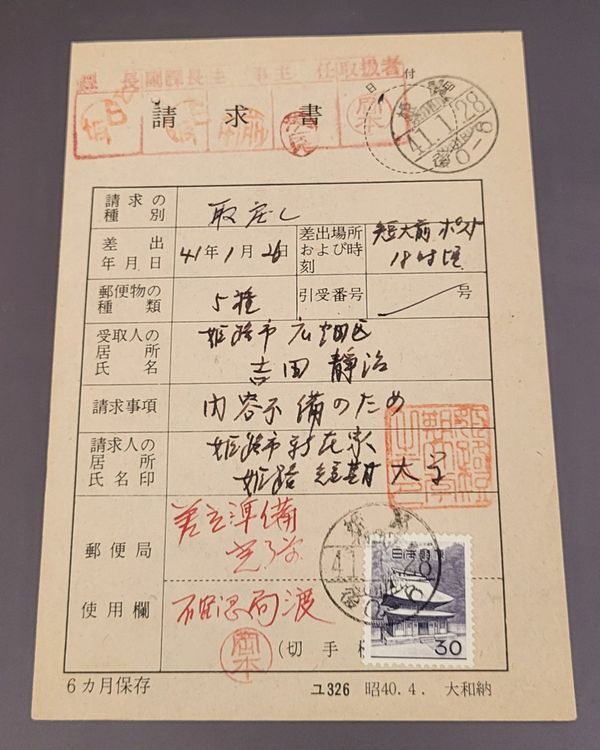 課長 主事 主任 取扱者
岡本
請求書
日付
41.1.28
0-8
請求の種別 取戻し
差出年月日 41年1月26日
差出場所および時刻 短大前ポスト 18時頃
郵便物の種類 5種
引受番号 号
受取人の居所氏名 姫路市広畑区
吉田静治
請求事項 内容不備のため
請求人の居所氏名印 姫路市新在家
姫路短期大学
郵便局使用欄 差立準備
完了前
確認 渡
岡本
(切手
日本郵便
30
6カ月保存 ユ326 昭40.4. 大和納